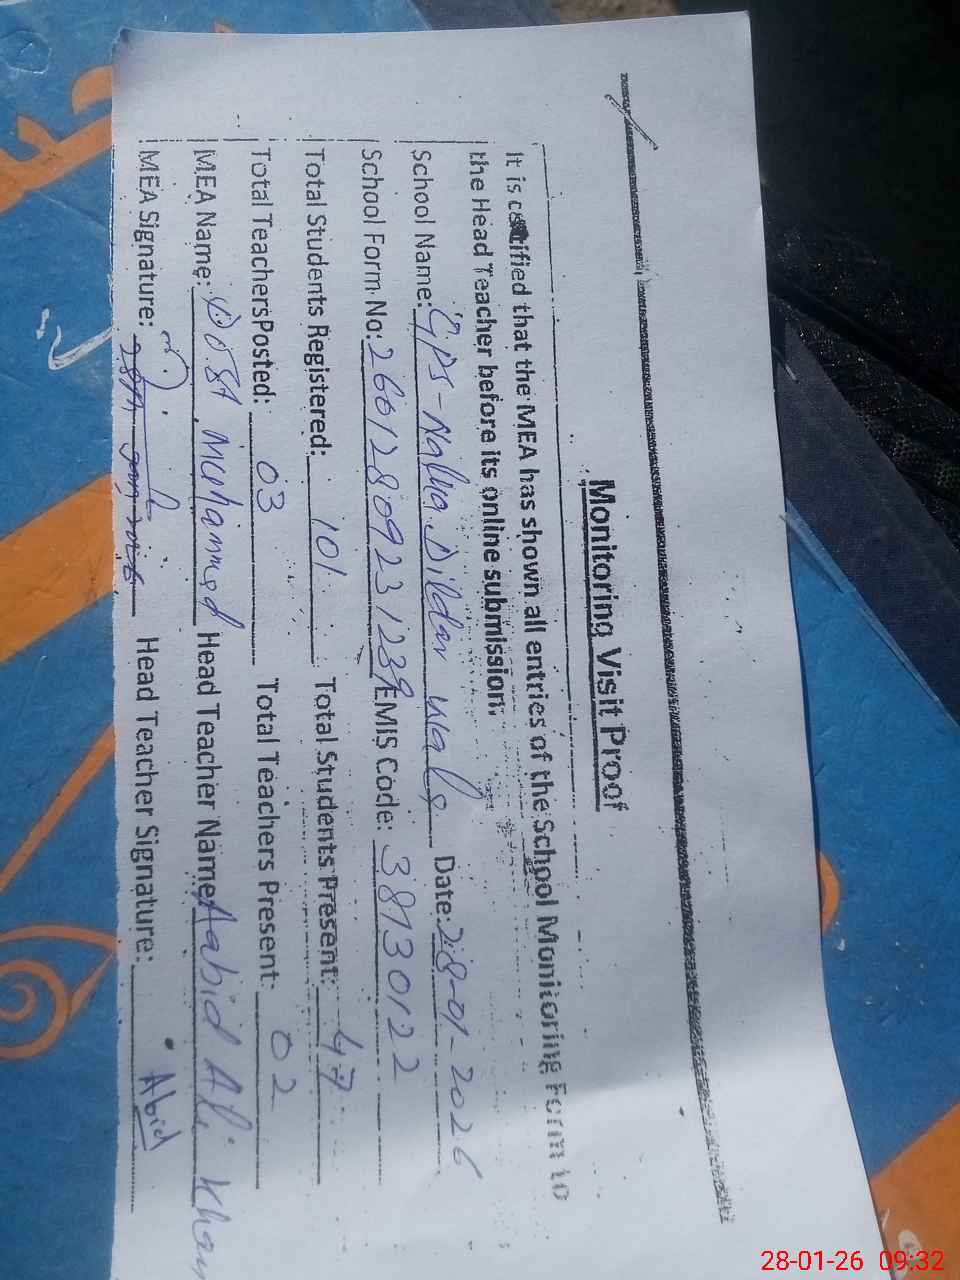 Monitoring Visit Proof
It is certified that the MEA has shown all entries of the School Monitoring Form to
the Head Teacher before its online submission.
School Name: GPS-Nalka Dildar wala Date: 28-01-2026
School Form No: 2601280923123 EMIS Code: 38130122
Total Students Registered: 101 Total Students Present: 47
Total TeachersPosted: 03 Total Teachers Present: 02
MEA Name: Muhammad Head Teacher Name: Aabid Ali Khan
MEA Signature: Head Teacher Signature: Abid
28-01-26 09:32